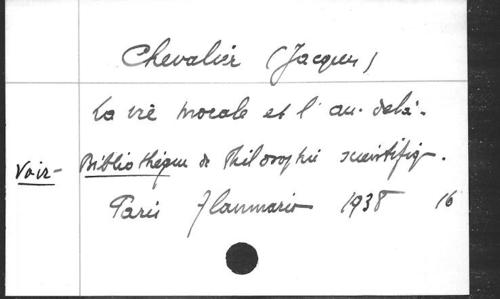 Chevalier (Jacques)
La vie morale et l'au-delà.
Voir- Bibliothèque de Philosophie scientifiq.
Paris Flammarion 1938 16